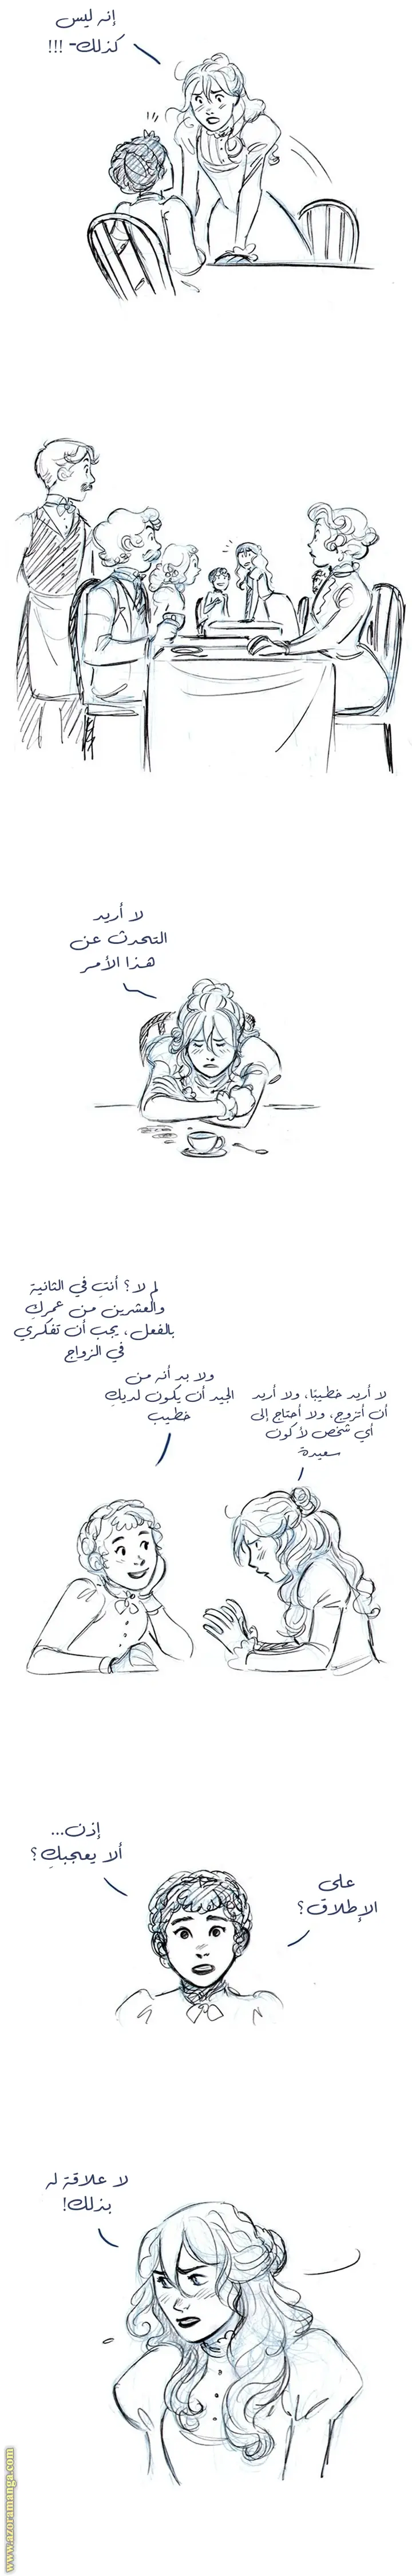 إنه ليس
كذلك- !!!
لا أريد
التحدث عن
هذا الأمر
لم لا؟ أنتِ في الثانية
والعشرين من عمركِ
بالفعل، يجب أن تفكري
في الزواج
ولا بد أنه من
الجيد أن يكون لديكِ
خطيب
لا أريد خطيبًا، ولا أريد
أن أتزوج، ولا أحتاج إلى
أي شخص لأكون
سعيدة
إذن...
ألا يعجبكِ؟
على
الإطلاق؟
لا علاقة له
بذلك!
www.azoramanga.com